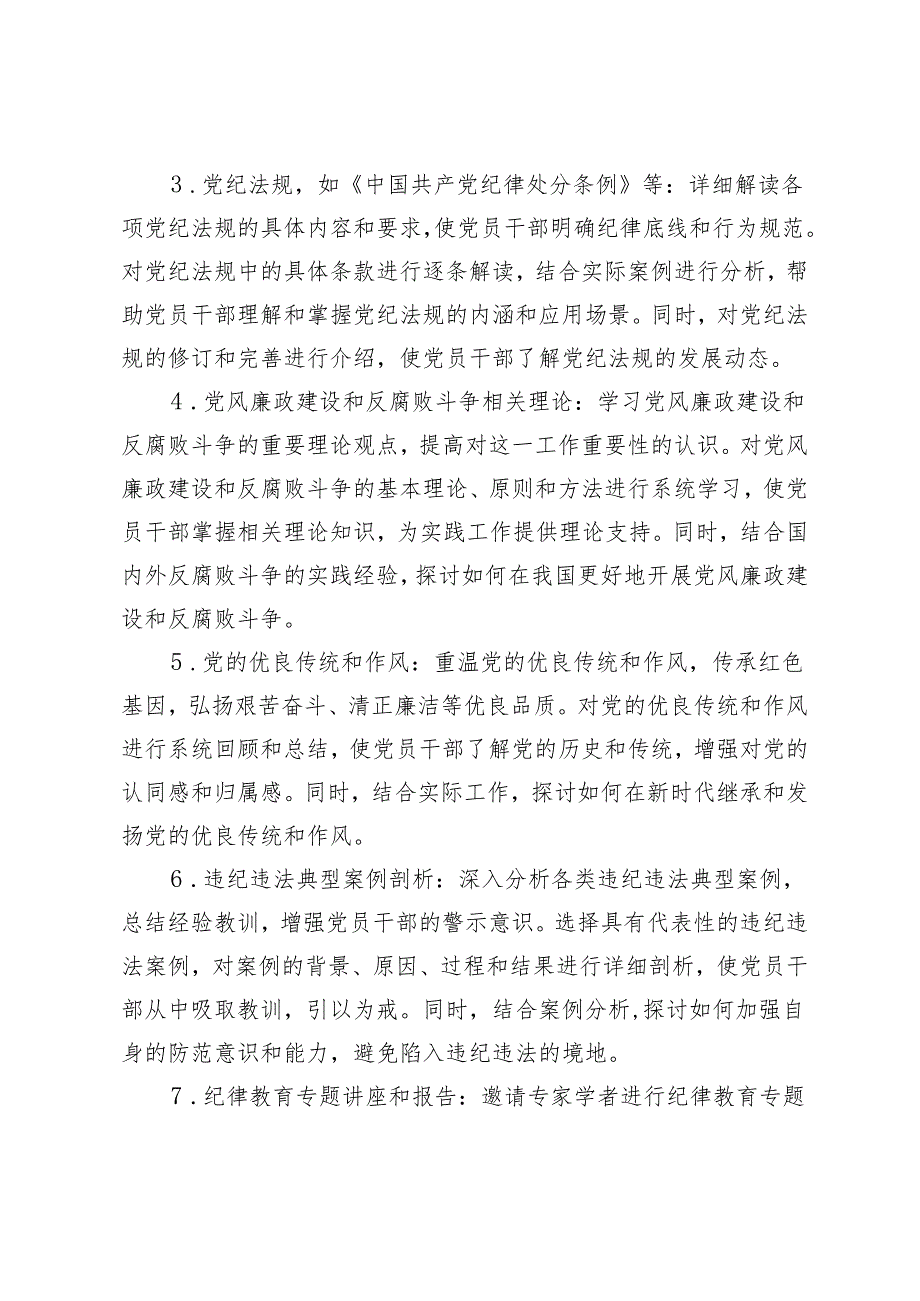 3．党纪法规，如《中国共产党纪律处分条例》等：详细解读各
项党纪法规的具体内容和要求，使党员干部明确纪律底线和行为规范。
对党纪法规中的具体条款进行逐条解读，结合实际案例进行分析，帮
助党员干部理解和掌握党纪法规的内涵和应用场景。同时，对党纪法
规的修订和完善进行介绍，使党员干部了解党纪法规的发展动态。
4．党风廉政建设和反腐败斗争相关理论：学习党风廉政建设和
反腐败斗争的重要理论观点，提高对这一工作重要性的认识。对党风
廉政建设和反腐败斗争的基本理论、原则和方法进行系统学习，使党
员干部掌握相关理论知识，为实践工作提供理论支持。同时，结合国
内外反腐败斗争的实践经验，探讨如何在我国更好地开展党风廉政建
设和反腐败斗争。
5．党的优良传统和作风：重温党的优良传统和作风，传承红色
基因，弘扬艰苦奋斗、清正廉洁等优良品质。对党的优良传统和作风
进行系统回顾和总结，使党员干部了解党的历史和传统，增强对党的
认同感和归属感。同时，结合实际工作，探讨如何在新时代继承和发
扬党的优良传统和作风。
6．违纪违法典型案例剖析：深入分析各类违纪违法典型案例，
总结经验教训，增强党员干部的警示意识。选择具有代表性的违纪违
法案例，对案例的背景、原因、过程和结果进行详细剖析，使党员干
部从中吸取教训，引以为戒。同时，结合案例分析,探讨如何加强自
身的防范意识和能力，避免陷入违纪违法的境地。
7．纪律教育专题讲座和报告：邀请专家学者进行纪律教育专题